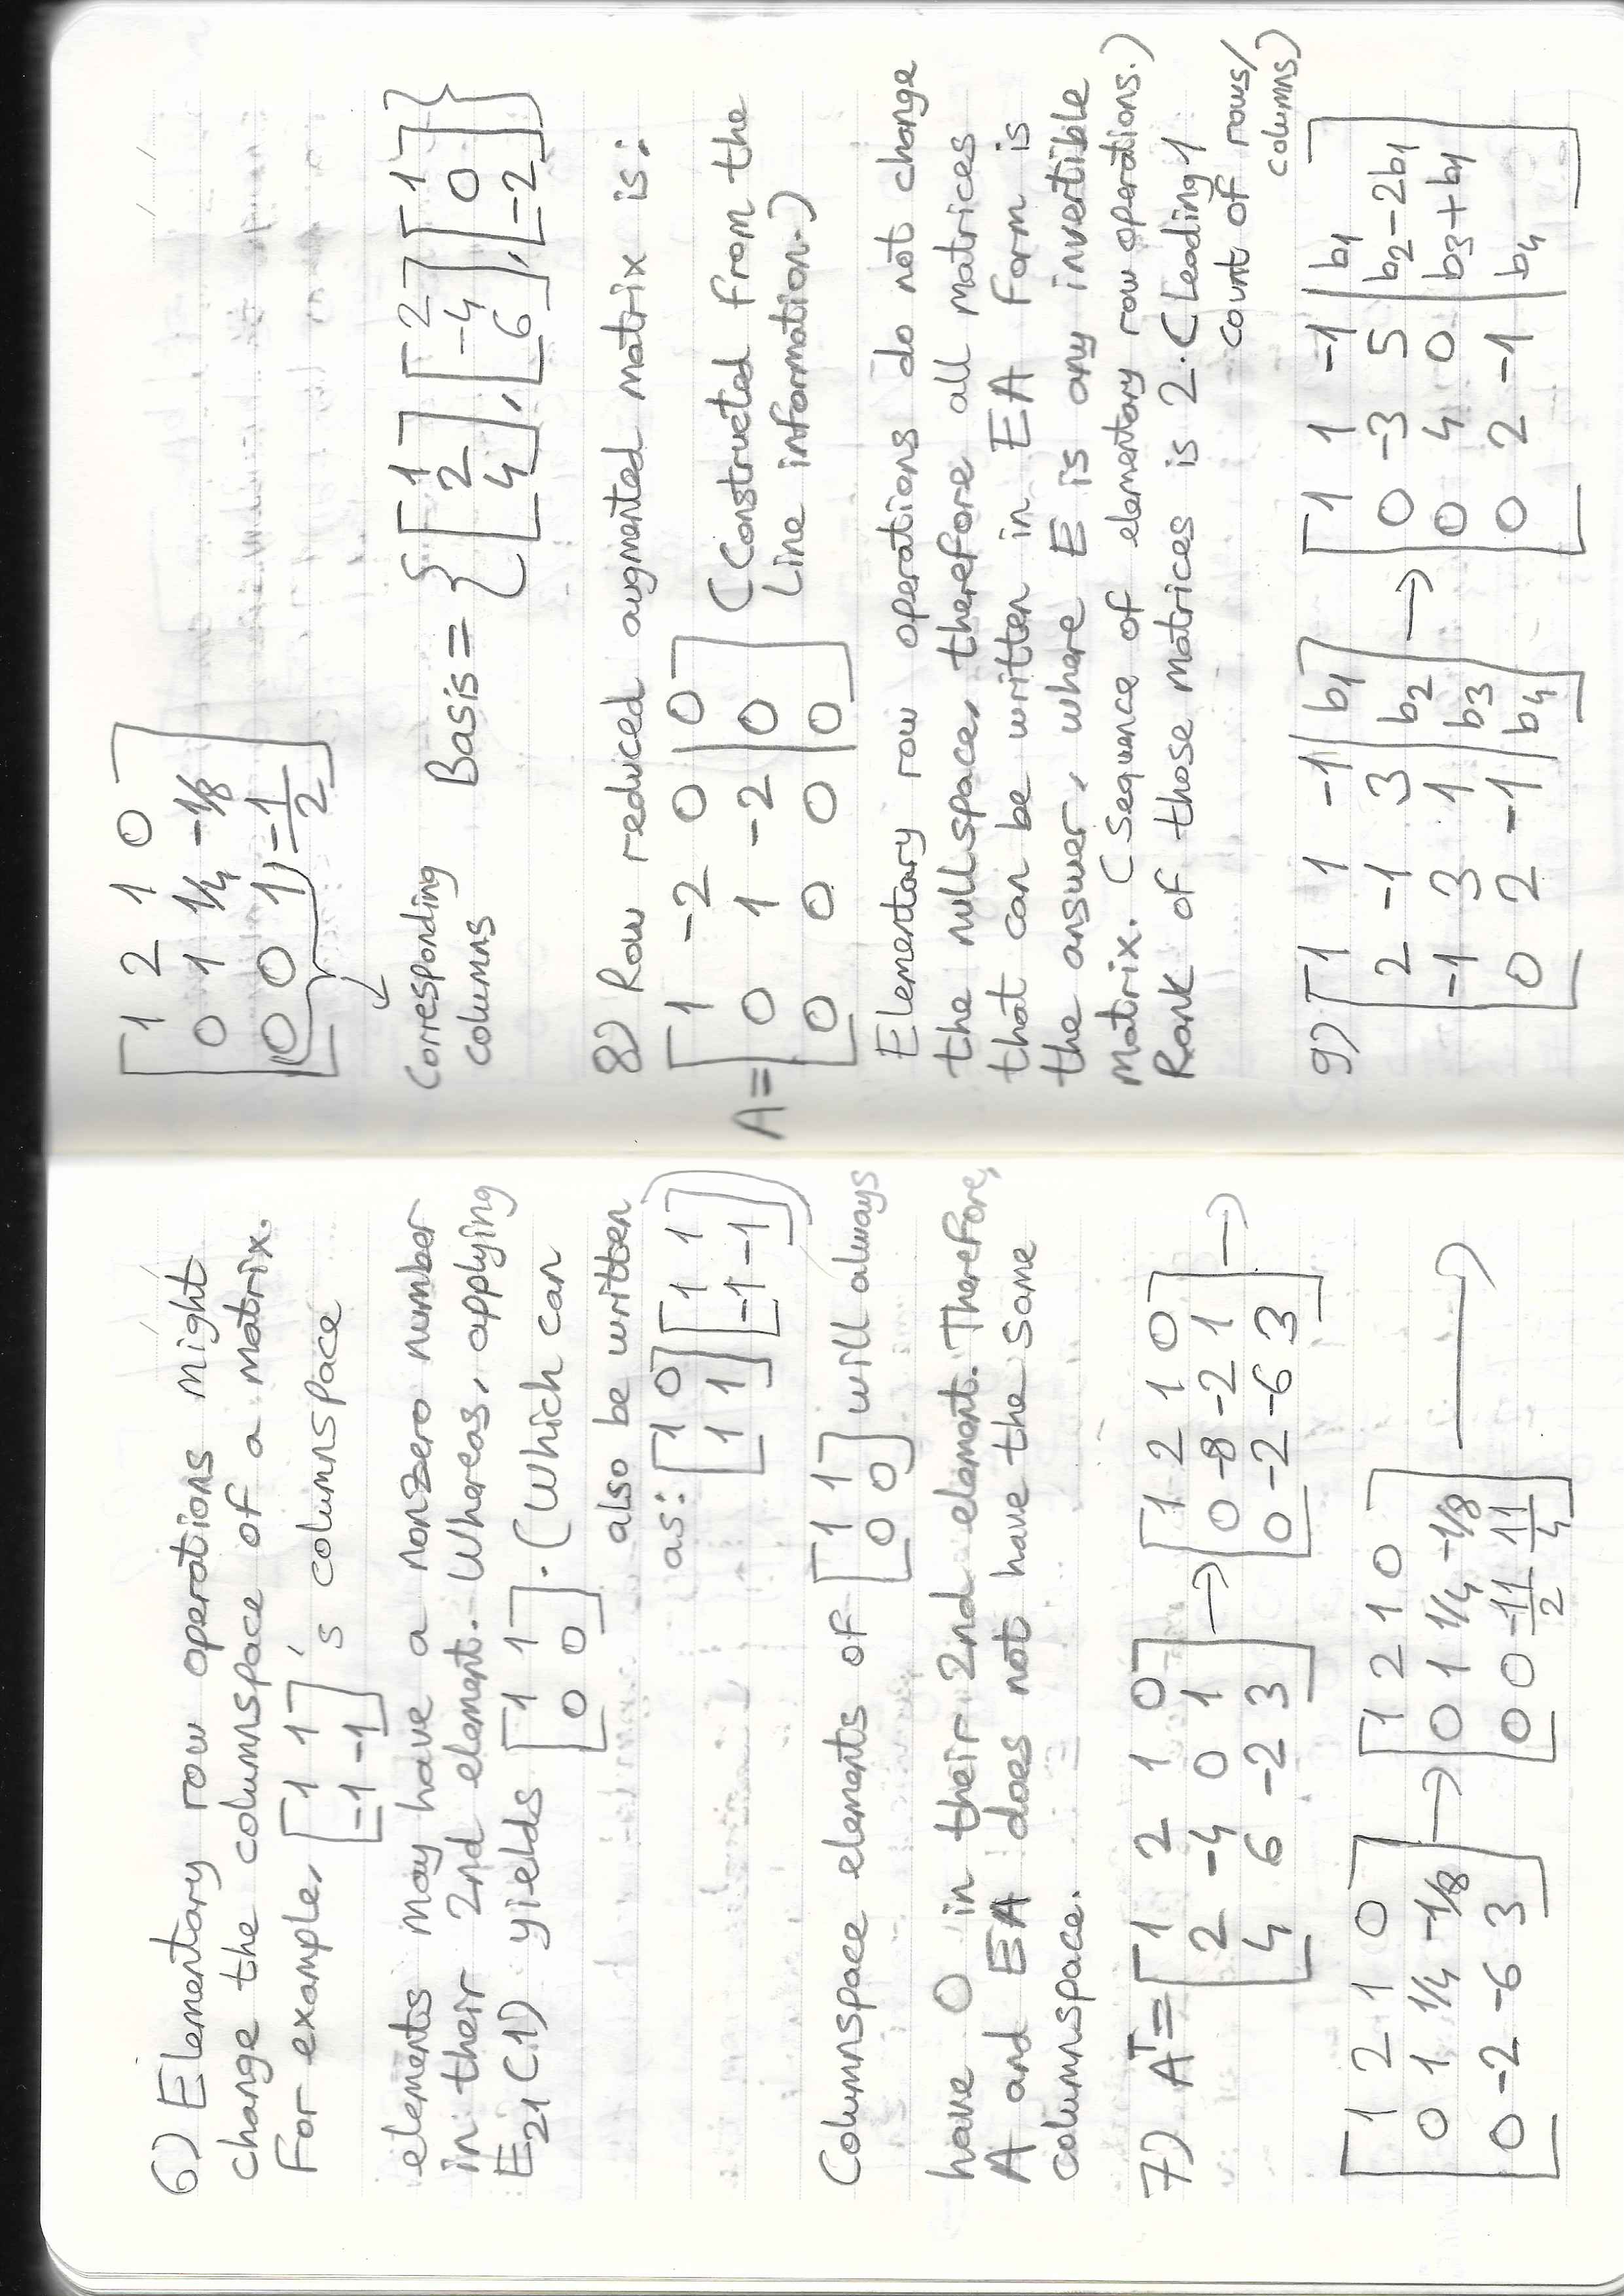 6) Elementary row operations might
change the columnspace of a matrix.
For example, [1 1; -1 -1]'s columnspace
elements may have a nonzero number
in their 2nd element. Whereas, applying
E21(1) yields [1 1; 0 0]. (Which can
also be written
as: [1 0; 1 1] [1 1; -1 -1])
Columnspace elements of [1 1; 0 0] will always
have 0 in their 2nd element. Therefore,
A and EA does not have the same
columnspace.
7) A^T = [1 2 1 0; 2 -4 0 1; 4 6 -2 3] → [1 2 1 0; 0 -8 -2 1; 0 -2 -6 3] →
[1 2 1 0; 0 1 1/4 -1/8; 0 -2 -6 3] → [1 2 1 0; 0 1 1/4 -1/8; 0 0 -11/2 11/4] →
[1 2 1 0; 0 1 1/4 -1/8; 0 0 1 -1/2]
Corresponding
columns
Basis = {[1; 2; 4], [2; -4; 6], [1; 0; -2]}
8) Row reduced augmented matrix is:
A = [1 -2 0 | 0; 0 1 -2 | 0; 0 0 0 | 0] (Constructed from the
line information.)
Elementary row operations do not change
the nullspace, therefore all matrices
that can be written in EA form is
the answer, where E is any invertible
matrix. (Sequence of elementary row operations.)
Rank of those matrices is 2. (Leading 1
count of rows/
columns)
9) [1 1 -1 | b1; 2 -1 3 | b2; -1 3 1 | b3; 0 2 -1 | b4] → [1 1 -1 | b1; 0 -3 5 | b2-2b1; 0 4 0 | b3+b1; 0 2 -1 | b4]